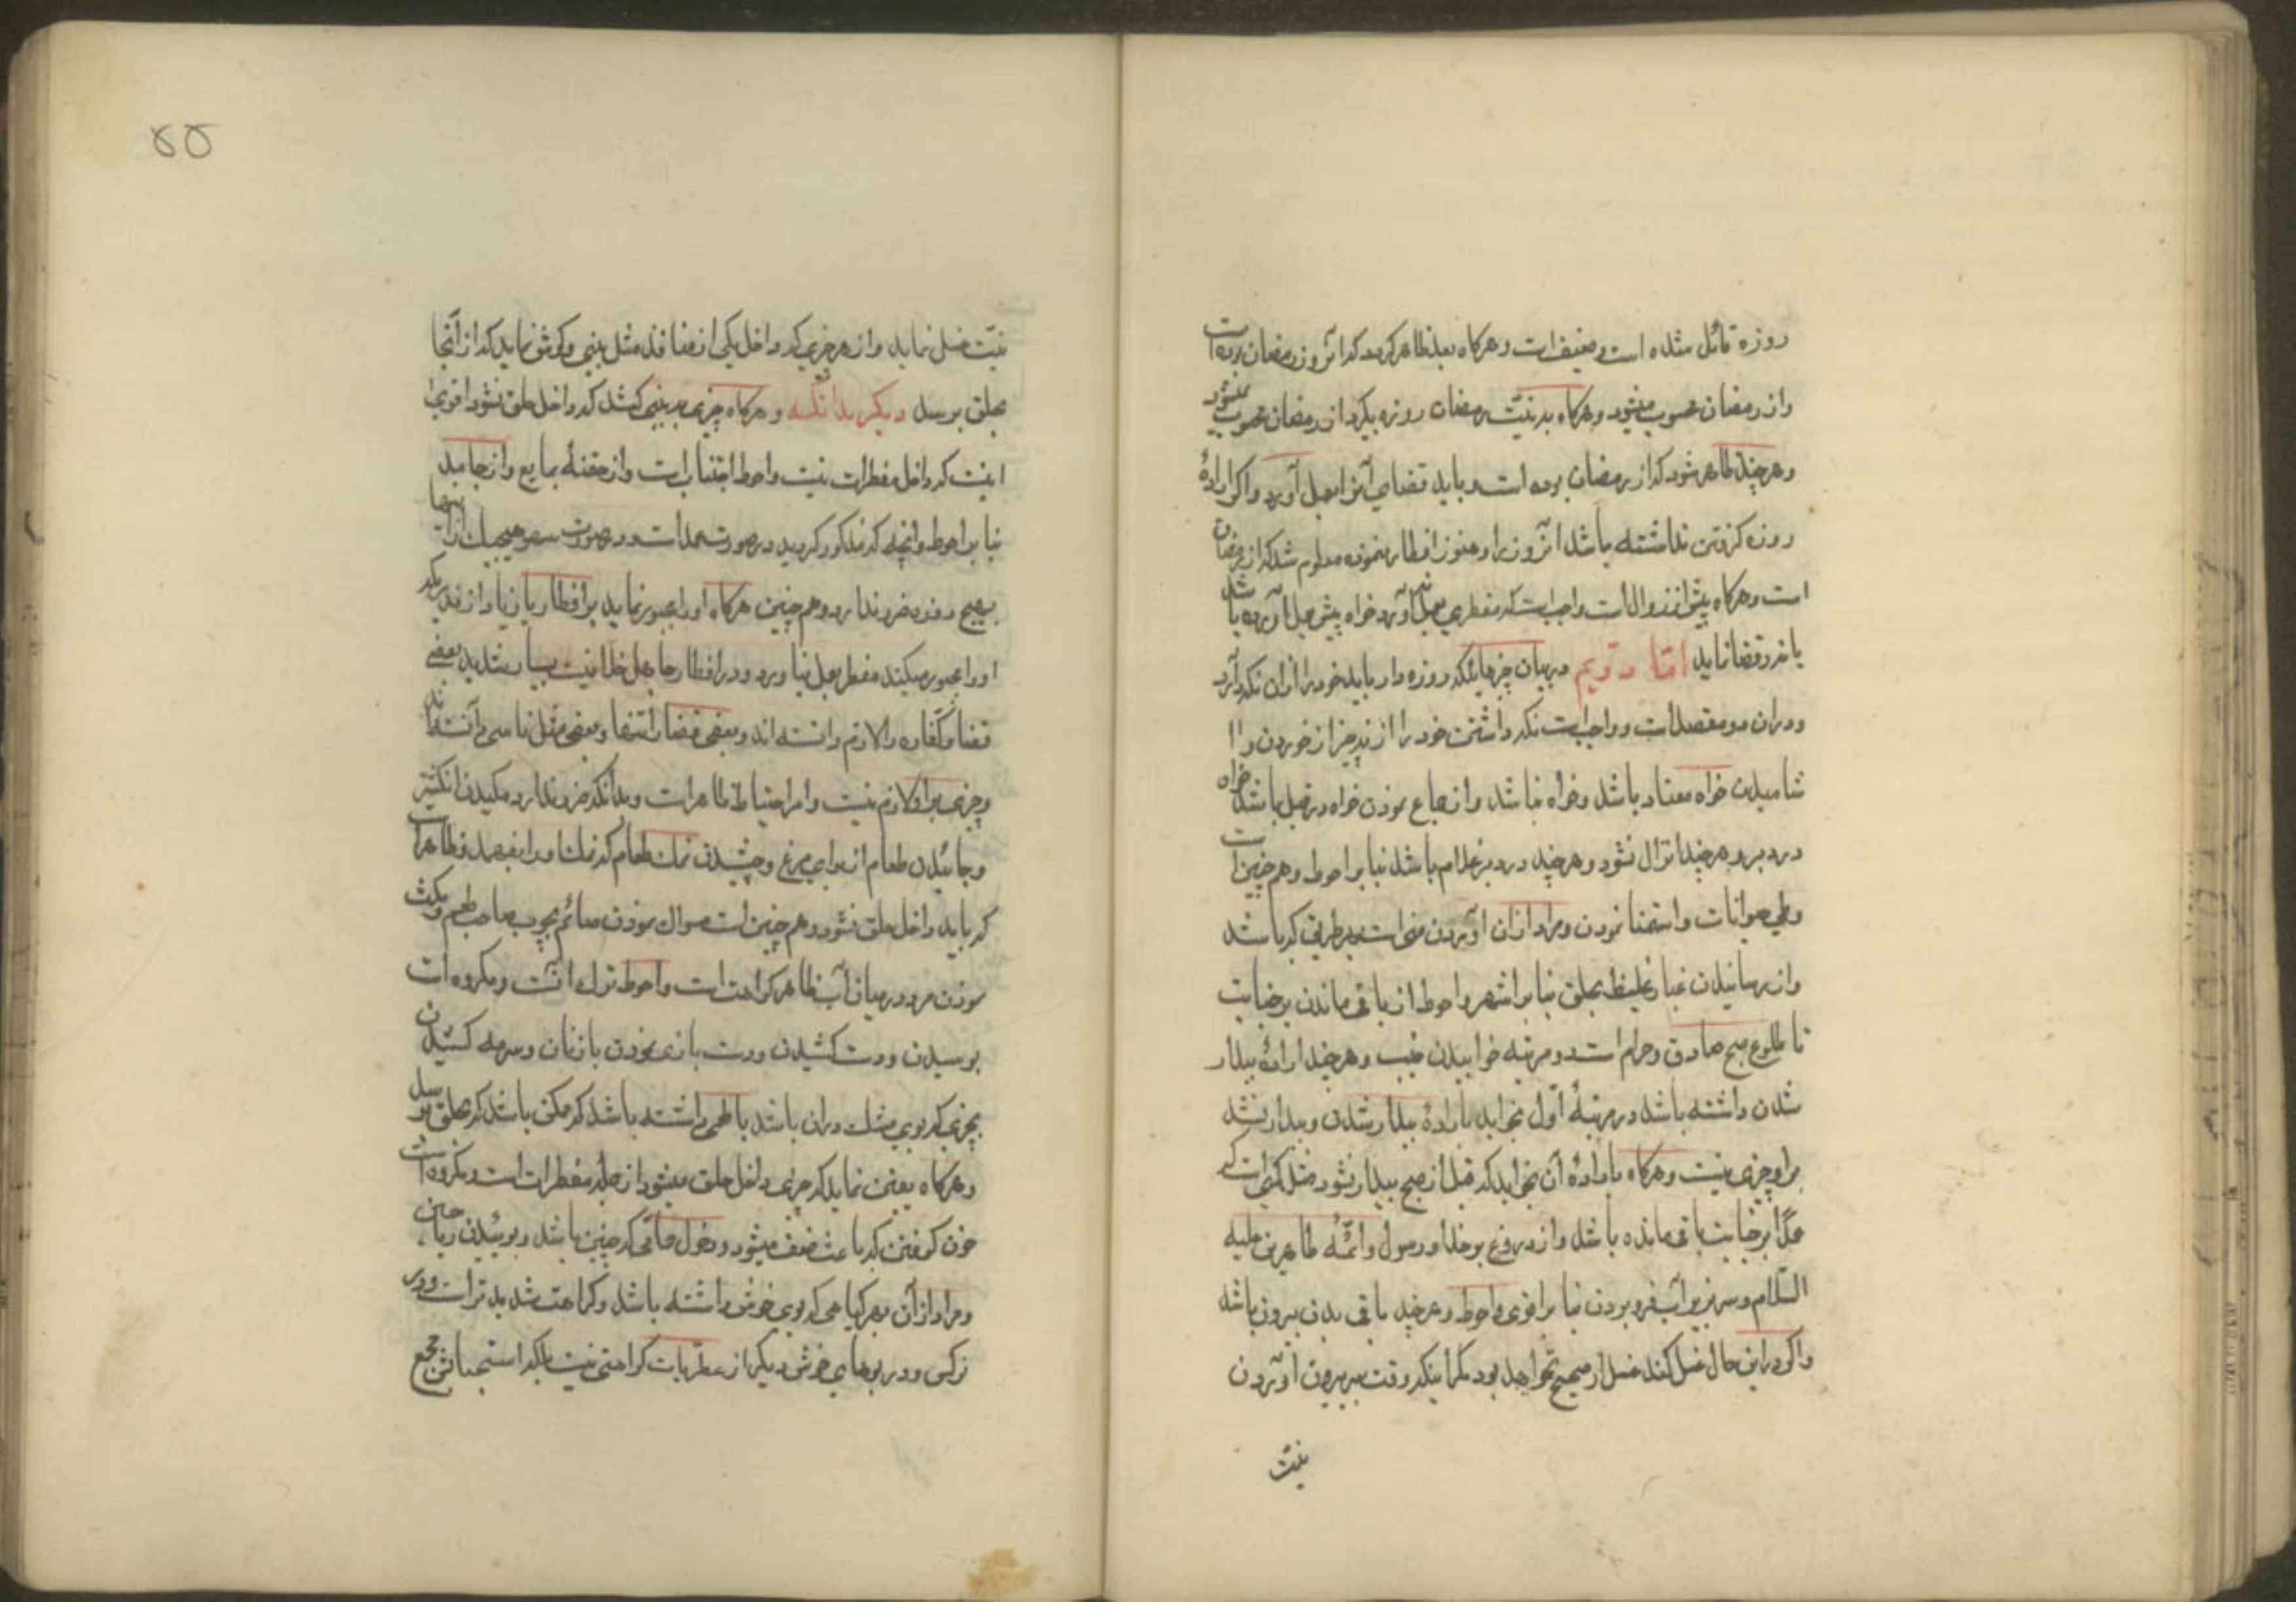 روزه قائل شده است و ضعیف است و هرکاه بعد ظاهر کردید که آنروز رمضان بوده است
واز رمضان محسوب میشود و هرکاه به نیّت رمضان روزه بکیرد از رمضان محسوب نمیشود
و هرچند ظاهر شود که از رمضان بوده است و باید قضای آنرا بعمل آورد و اکر ارادهٔ
روزه کرفتن نداشته باشد آنروز را و هنوز افطار ننموده معلوم شد که از رمضان
است و هرکاه پیش از زوال است واجب است که مفطری بعمل نیاورد خواه پیش بعمل آورده باشد
یا نه و قضا نماید امّا دویم در بیان چیزهائیکه روزه دار باید خود را از آن نکه دارد
و در آن دو مقصد است و واجب است نکه داشتن خود را از ند چیز از خوردن و ا
شامیدن خواه معتاد باشد و خواه نباشد و از جماع نمودن خواه در قبل باشد خواه
در دبر و هرچند انزال نشود و هرچند در دبر غلام باشد بنا بر احوط و هم چنین است
وطی حیوانات و استمنا نمودن و مراد از آن آوردن منی است بهر طریق که باشد
واز رسانیدن غبار غلیظ بحلق بنا بر اشهر و احوط از باقی ماندن بر جنابت
تا طلوع صبح صادق و حرام است دو مرتبه خوابیدن جنب و هرچند ارادهٔ بیدار
شدن داشته باشد در مرتبهٔ اوّل بخوابد بارادهٔ بیدار شدن و بیدار نشد
بر او چیزی نیست و هرکاه بارادهٔ آن بخوابد که قبل از صبح بیدار نشود مثل کسی است که
عمداً بر جنابت باقی مانده باشد واز دروغ بر خدا و رسول و ائمّه طاهرین علیه
السّلام و سر بزیر آب فرو بردن بنا بر اقوی و احوط و هرچند باقی بدن بیرون باشد
واکر در این حال غسل کند غسل او صحیح نخواهد بود مکر اینکه وقت سر بیرون آوردن
نیّت
۵۵
نیّت غسل نماید واز هر چیزی که داخل یکی از منافذ مثل بینی و کوش نماید که از آنجا
بحلق برسد دیکر بدانکه و هرکاه چیزی به بینی کشد که داخل حلق نشود اقوی
اینست که داخل مفطرات نیست و احوط اجتناب است واز حقنهٔ بمایع واز جامد
بنا بر احوط و آنچه که مذکور کردید در صورت عمد است و در صورت سهو هیچیک از اینها
بصیحّ روزه ضرر ندارد و هم چنین هرکاه او را مجبور نماید بر افطار یا زیاد از قدریکه
او را مجبور میکنند مفطر بعمل نیاورد و در افطار جاهل خلافیست بسیار شدید بعضی
قضا و کفّاره را لازم دانسته اند و بعضی قضا را تنها و بعضی مثل ناسی دانسته اند
و چیزی بر او لازم نیست و امر احتیاط ظاهر است و بدانکه ضرر ندارد مکیدن انکشتر
و جائیدن طعام از برای مرغ و چشیدن نمک طعام که نمک او را بفهمد و ظاهر است
که باید داخل حلق نشود و هم چنین است مسواک نمودن صائم بچوب صاحب طعم و مکث
نمودن مرد در میان آب ظاهر کراهت است و احوط ترک آنست و مکروه است
بوسیدن و دست کشیدن و دست بازی نمودن با زنان و سرمه کشیدن
بچیزی که بوی مشک در آن باشد یا طعمی داشته باشد که ممکن باشد که بحلق برسد
و هرکاه یقین نماید که چیزی داخل حلق میشود از جمله مفطرات است و مکروه است
خون کرفتن که باعث ضعف میشود و دخول حمّامی که چنین باشد و بوئیدن ریاحین
و مراد از آن بهر کیاهی که بوی خوش داشته باشد و کراهت شدید تر است در
نرکس و در بوهای خوش دیکر از عطریات کراهتی نیست بلکه استحباب آن مجمع